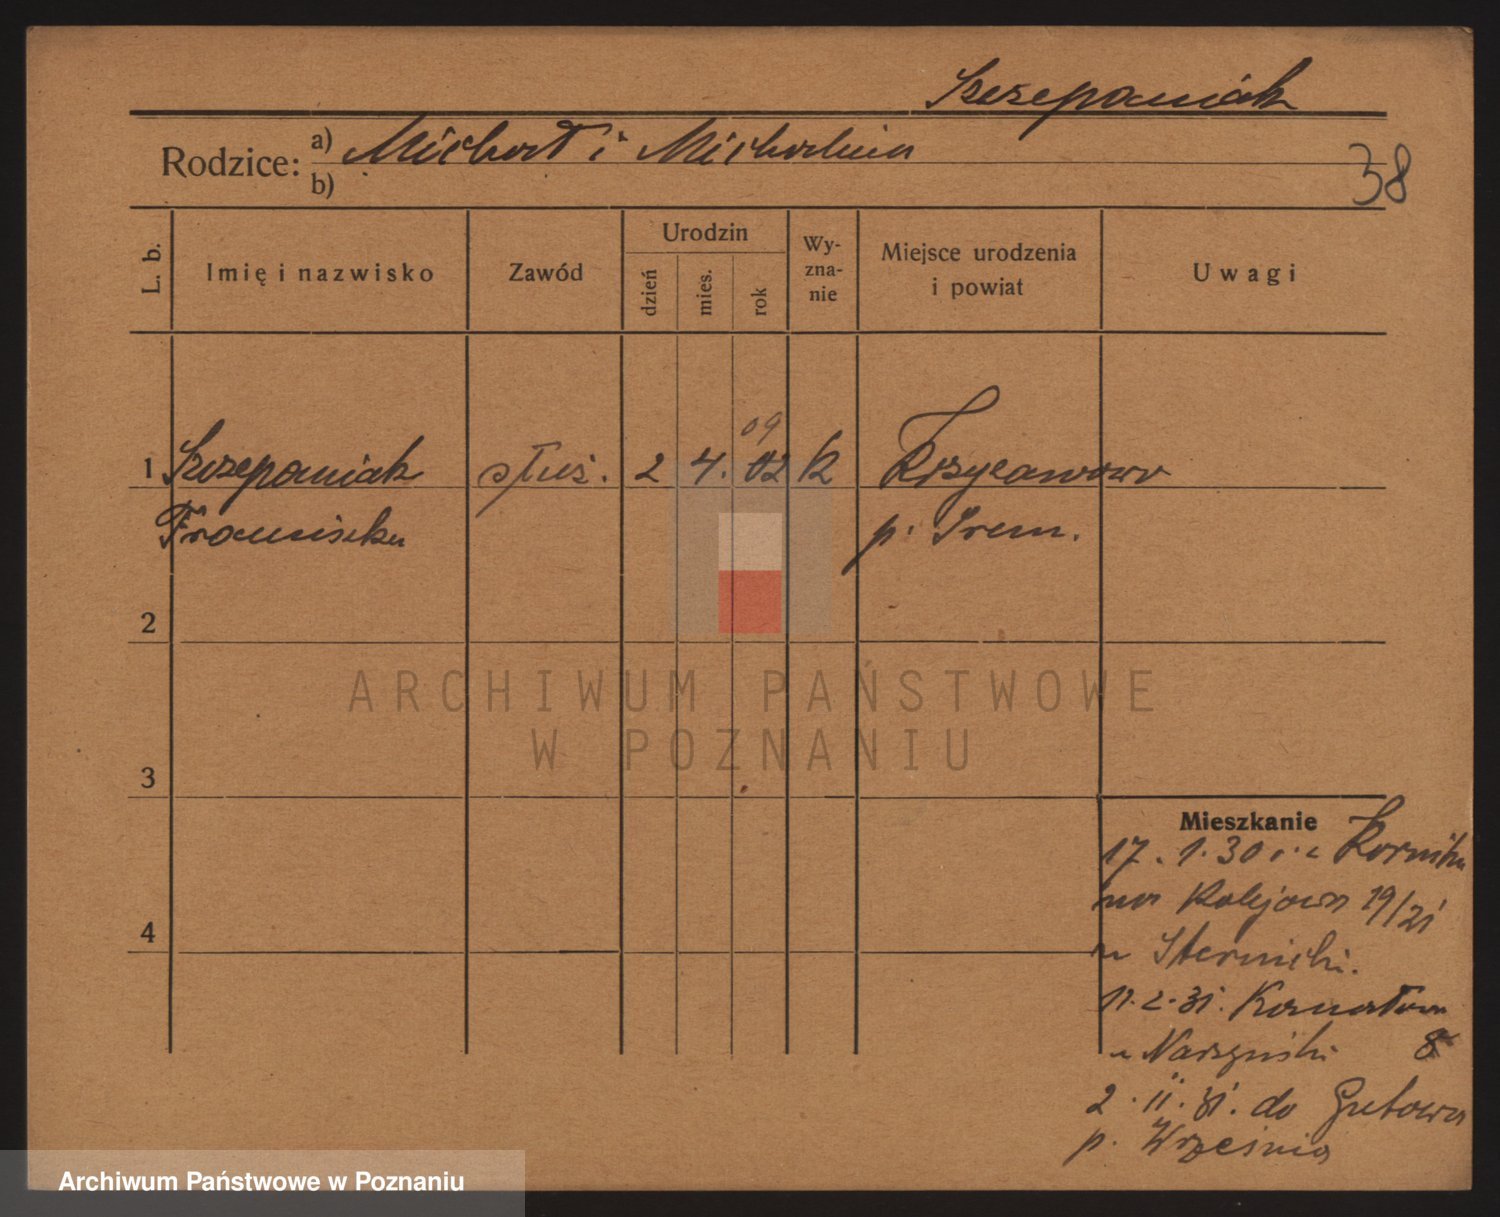 Szczepaniak
Rodzice: a) Michał i Michalina
b)
38
L. b.
Imię i nazwisko
Zawód
Urodzin
dzień
mies.
rok
Wy-
zna-
nie
Miejsce urodzenia
i powiat
Uwagi
09
1 Szczepaniak służ. 2 4. 02 k Krzyżanowo
Franciszka p. Śrem.
2
ARCHIWUM PAŃSTWOWE
W POZNANIU
3
Mieszkanie
17. 1. 30 Kornika
na Kolejowa 19/21
4
u
11. 2. 31. Kanałowa
u 8
2. 11. 31. do Gutowa
p. Września
Archiwum Państwowe w Poznaniu